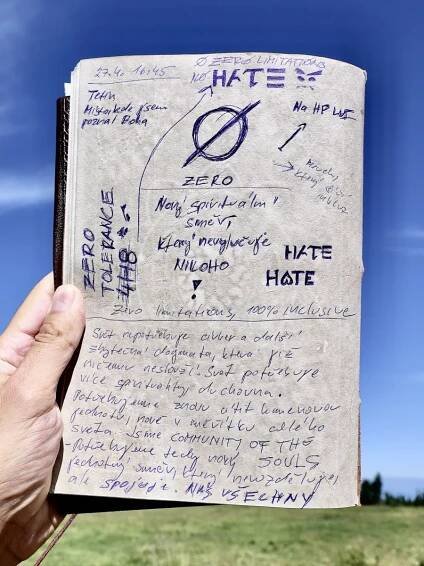 27.4. 16:45
Ø ZERO LIMITATIONS
NO HATE
Téma
Místa kde jsem
poznal Boha
Na HP
ZERO
ZERO
TOLERANCE
4H8
Nový spirituální
směr,
který nevylučuje
NIKOHO
!
HATE
HATE
Zero limitations, 100% inclusive
Svět nepotřebuje církev a další
zbytečná dogmata, která již
ničemu neslouží. Svět potřebuje
více spirituality, duchovna.
Potřebujeme znovu cítit
jednotu, nově v měřítku celého
světa. Jsme COMMUNITY OF THE
SOULS
- Potřebujeme tedy nový
jednotný směr, který nerozděluje,
ale spojuje. NÁS VŠECHNY